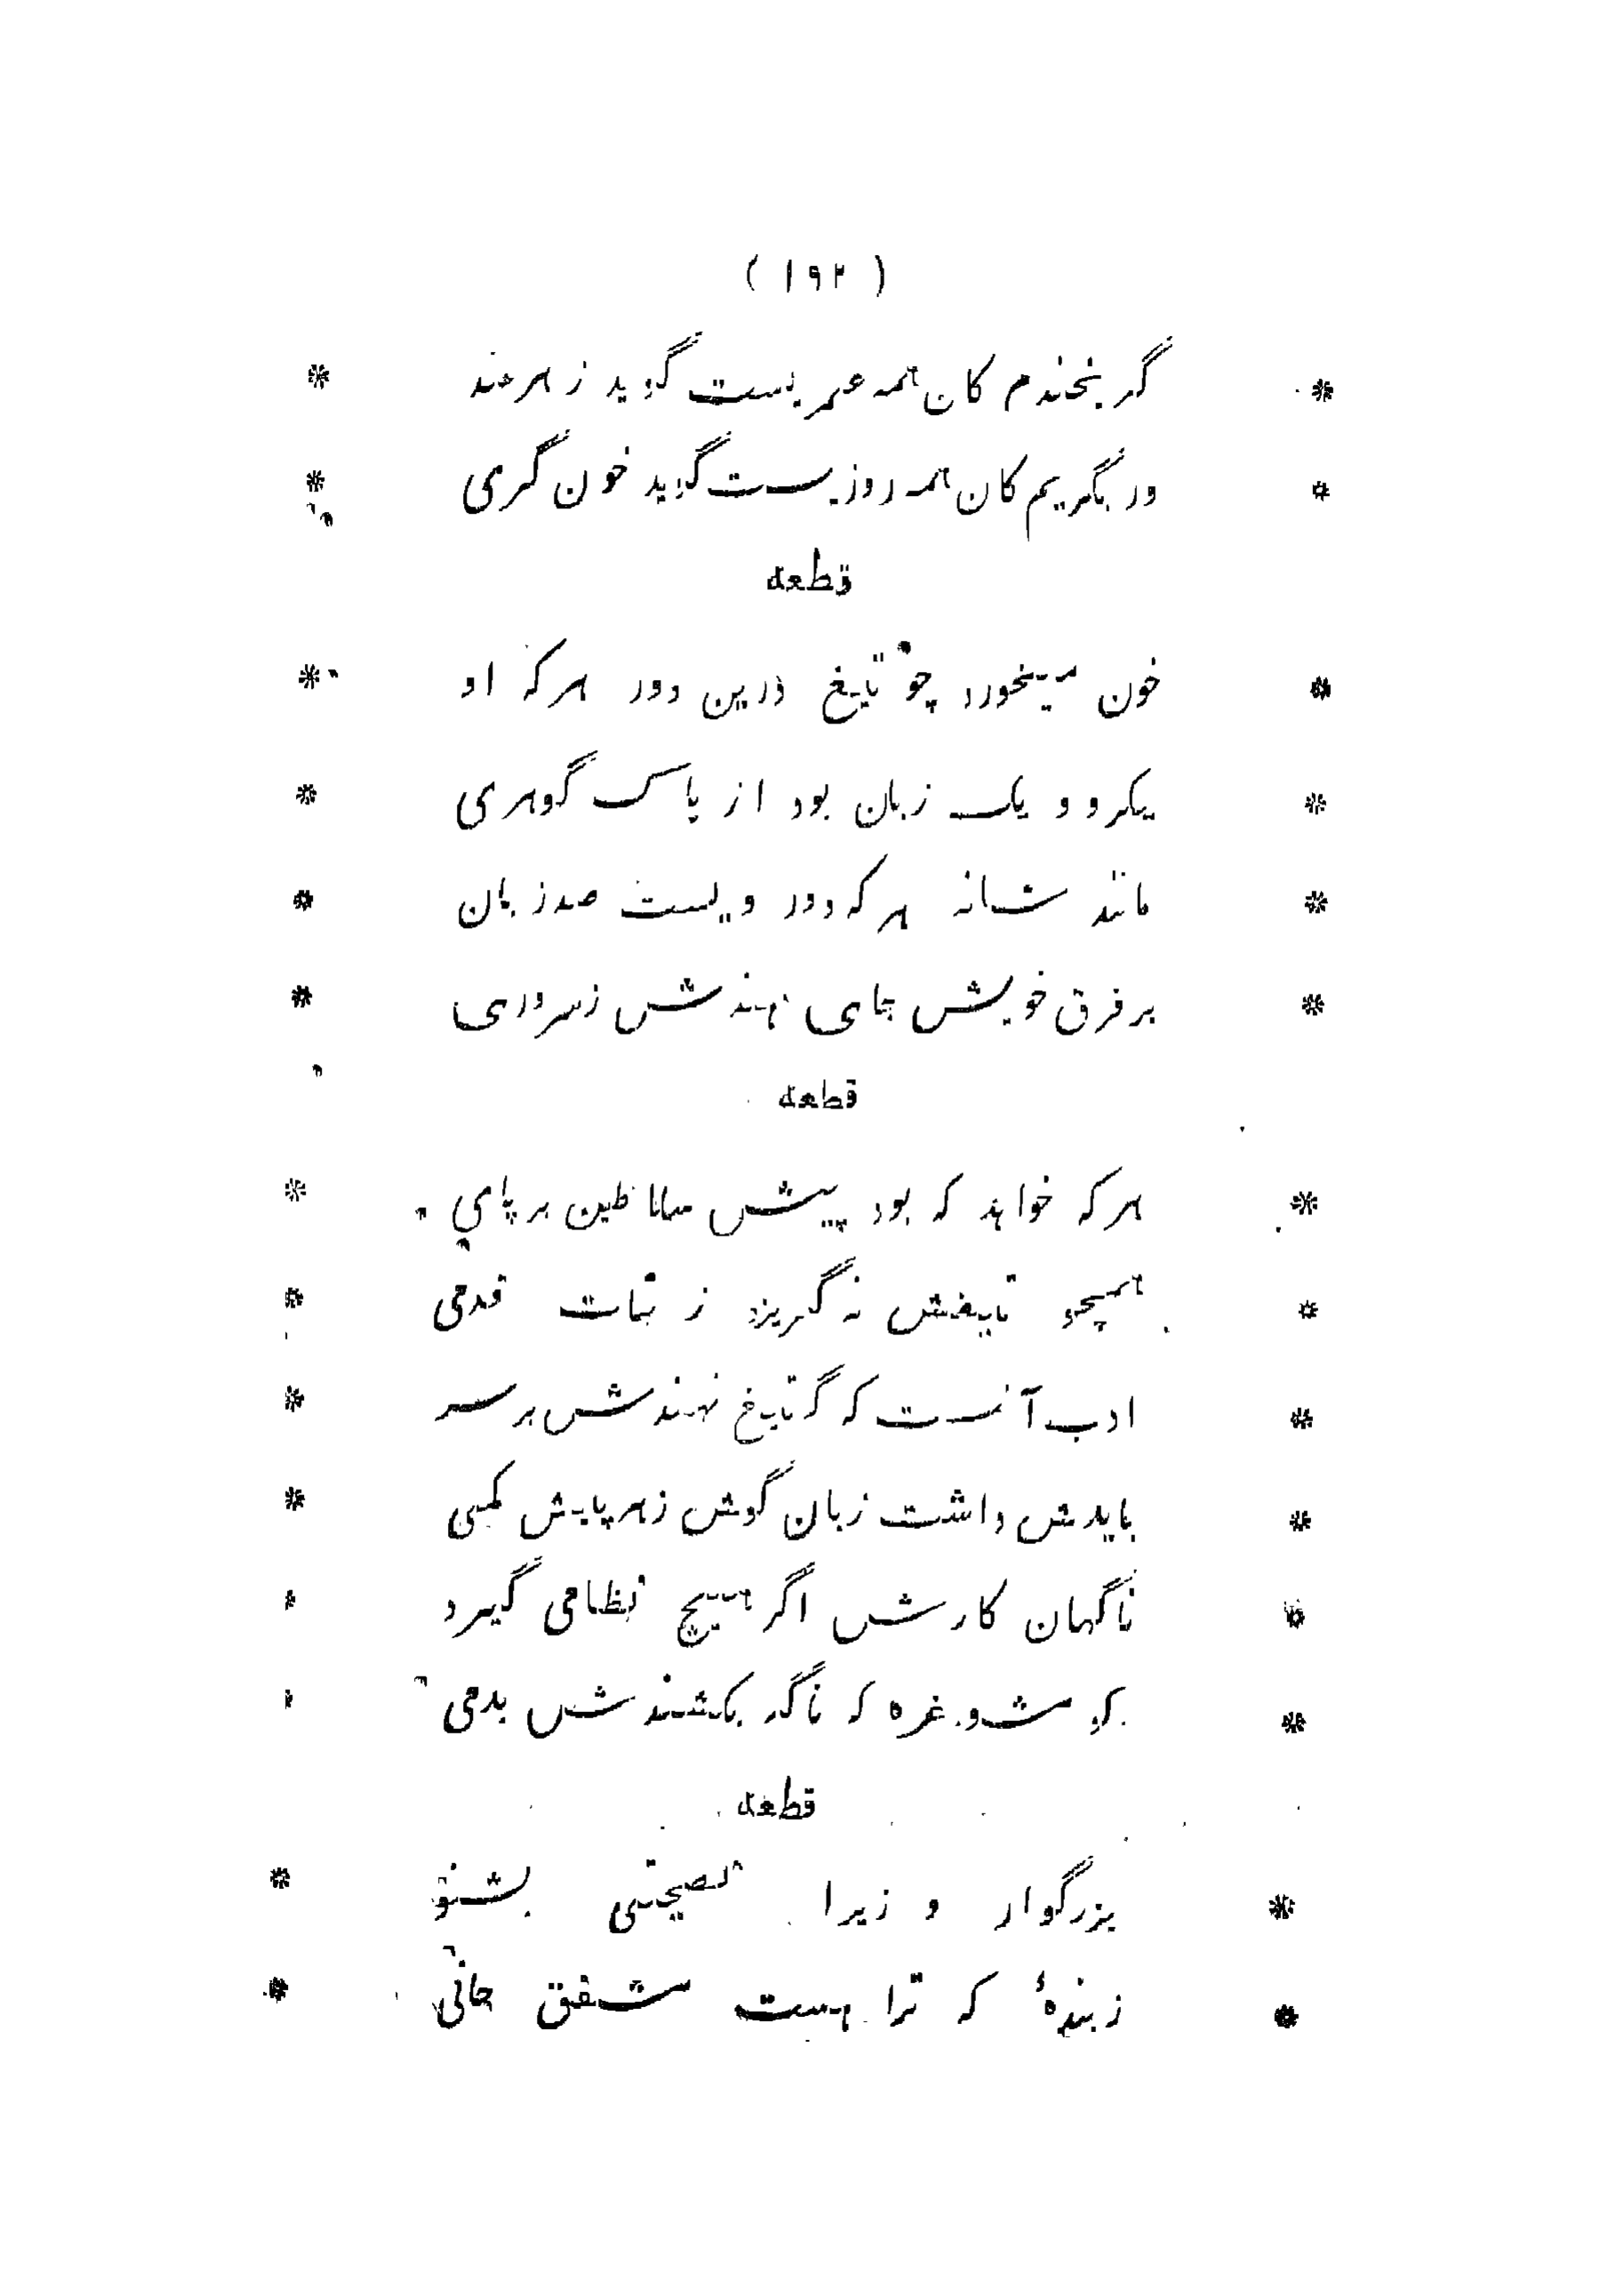 ( ۱۹۲ )
* گر بخندم کان همه عمریست گوید زهرخند *
* ور بگریم کان همه روزیست گوید خون گری *
قطعه
* خون میخورد چو تیغ درین دور هر که او *
* یکرو و یک زبان بود از پاک گوهری *
* مانند شانه هر که دور ویست صد زبان *
* بر فرق خویش جای نهندش ز سروری *
قطعه
* هر که خواهد که بود پیش سلاطین بر پای *
* همچو تیغش نه گریزد ز ثبات قدمی *
* ادب آنست که گر تیغ نهندش بر سر *
* بایدش داشت زبان گوش زهر پایش کمی *
* ناگهان کارش اگر هیچ نظامی گیرد *
* گو مشو غره که ناگه بکشندش بدمی *
قطعه
* بزرگوار وزیرا نصیحتی بشنو *
* ز بندهٔ که ترا هست مشفق جانی *